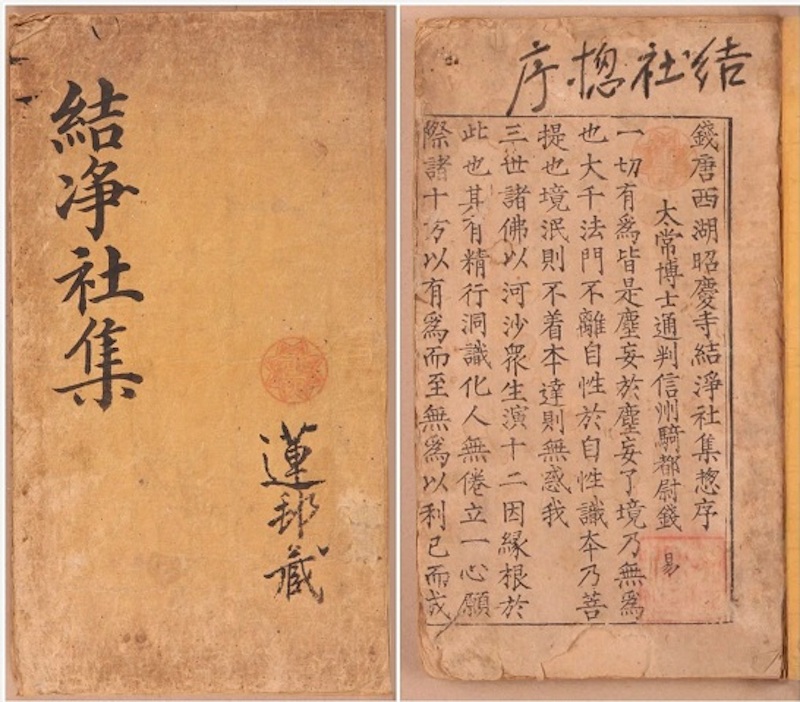 結净社集
蓮邦藏
结社揔序
錢唐西湖昭慶寺結淨社集惣序
太常博士通判信州騎都尉錢易
一切有爲皆是塵妄於塵妄了境乃無爲
也大千法門不離自性於自性識本乃菩
提也境泯則不着本達則無惑我
三世諸佛以河沙衆生演十二因緣根於
此也其有精行洞識化人無倦立一心願
際諸十方以有爲而至無爲以利已而或